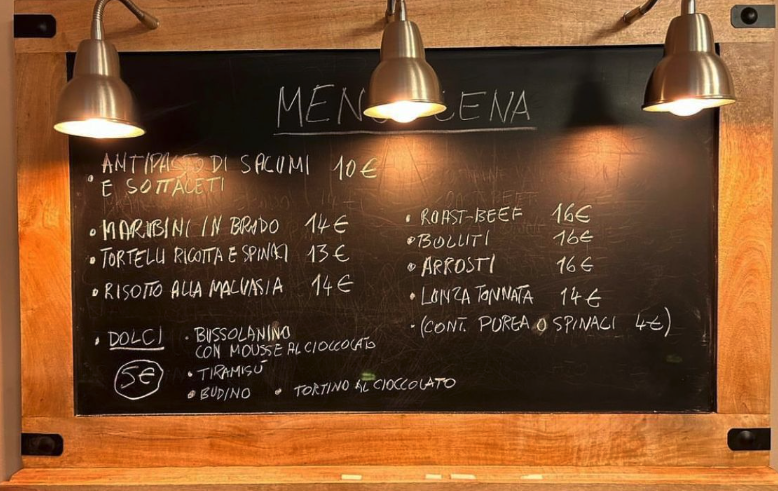 MENÙ CENA
• ANTIPASTO DI SALUMI 10€
E SOTTACETI
• MARUBINI IN BRODO 14€
• TORTELLI RICOTTA E SPINACI 13€
• RISOTTO ALLA MALVASIA 14€
• ROAST-BEEF 16€
• BOLLITI 16€
• ARROSTI 16€
• LONZA TONNATA 14€
• (CONT. PUREA O SPINACI 4€)
• DOLCI
5€
• BUSSOLANINO
CON MOUSSE AL CIOCCOLATO
• TIRAMISÙ
• BUDINO • TORTINO AL CIOCCOLATO